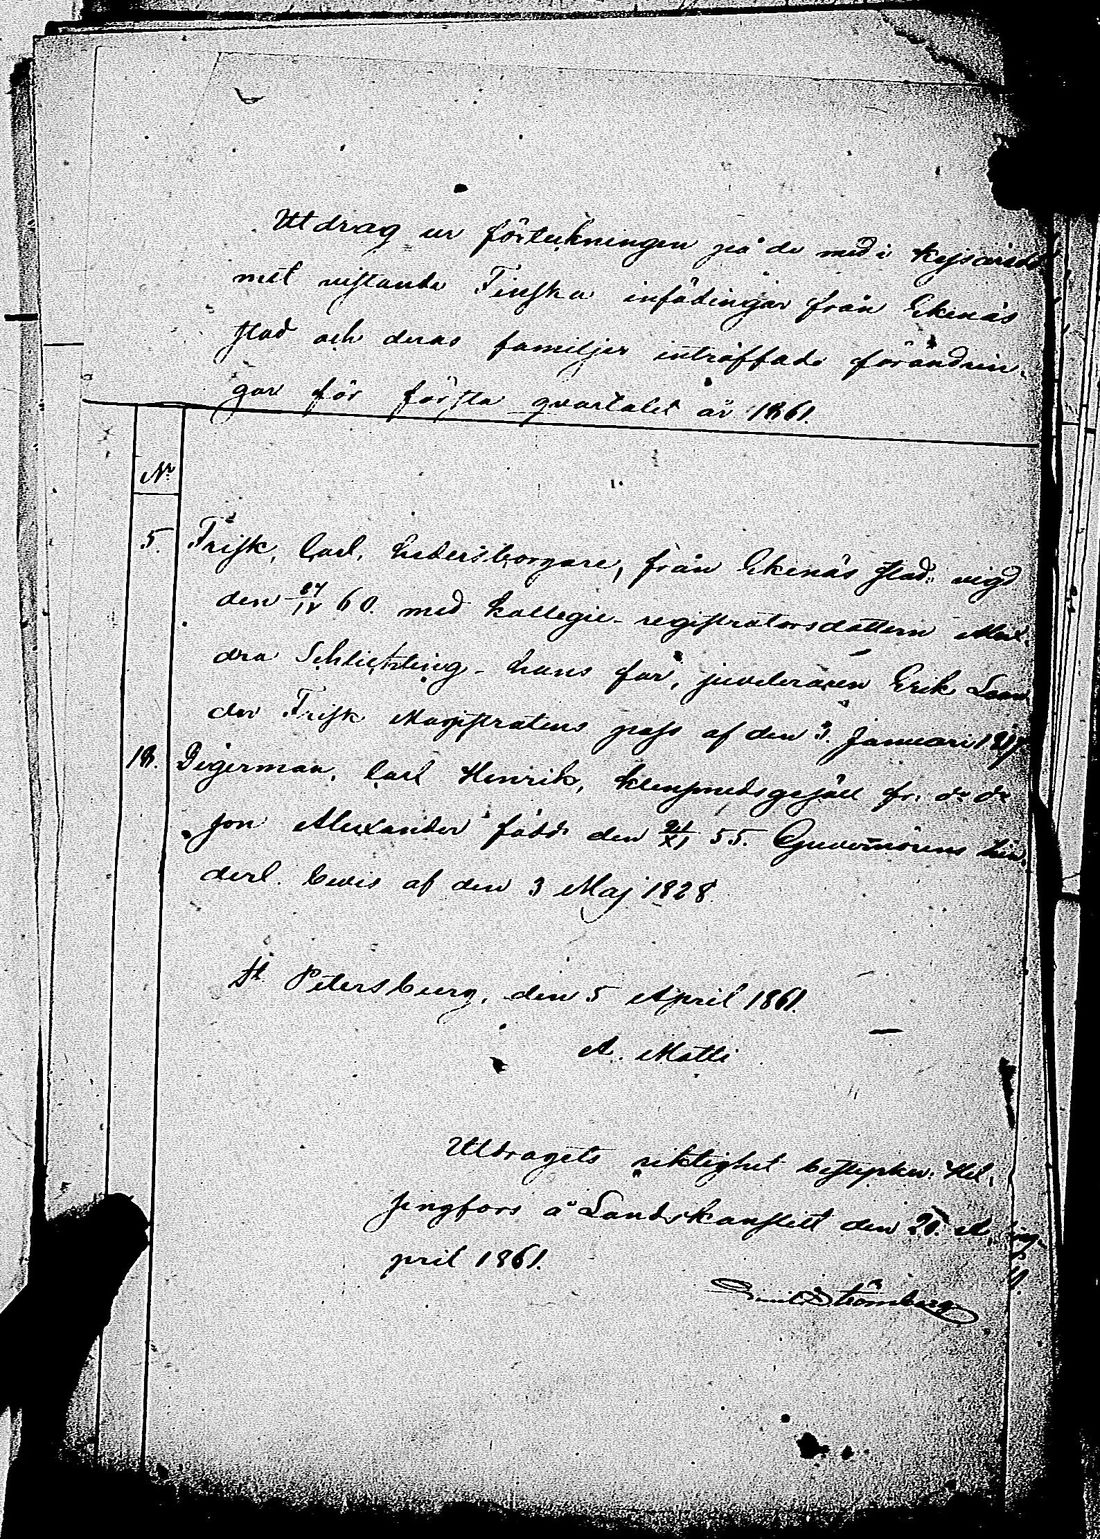 Utdrag ur förteckningen på de med i Kejsaredö-
met vistande Finska infödingar från Ekenäs
stad och deras familjer inträffade förändrin-
gar för första qvartalet år 1861.
No
5. Frisk, Carl, hedersborgare, från Ekenäs stad, vigd
den 27/IV 60. med kollegie-registratorsdottern Alex-
dra Schlichting - hans far, juveleraren Erik
der Frisk Magistratens pass af den 3. Januari
18. Digerman, Carl Henrik, klensmedsgesäll fr. d:o d:o
son Alexander född den 24/XI 55. Guvernörens
derl. bevis af den 3 Maj 1828
St Petersburg, den 5 April 1861.
A. Matti
Utdragets riktighet bestyrker. Hel-
singfors å Landskansliet den 20. A-
pril 1861.
Emil Strömberg